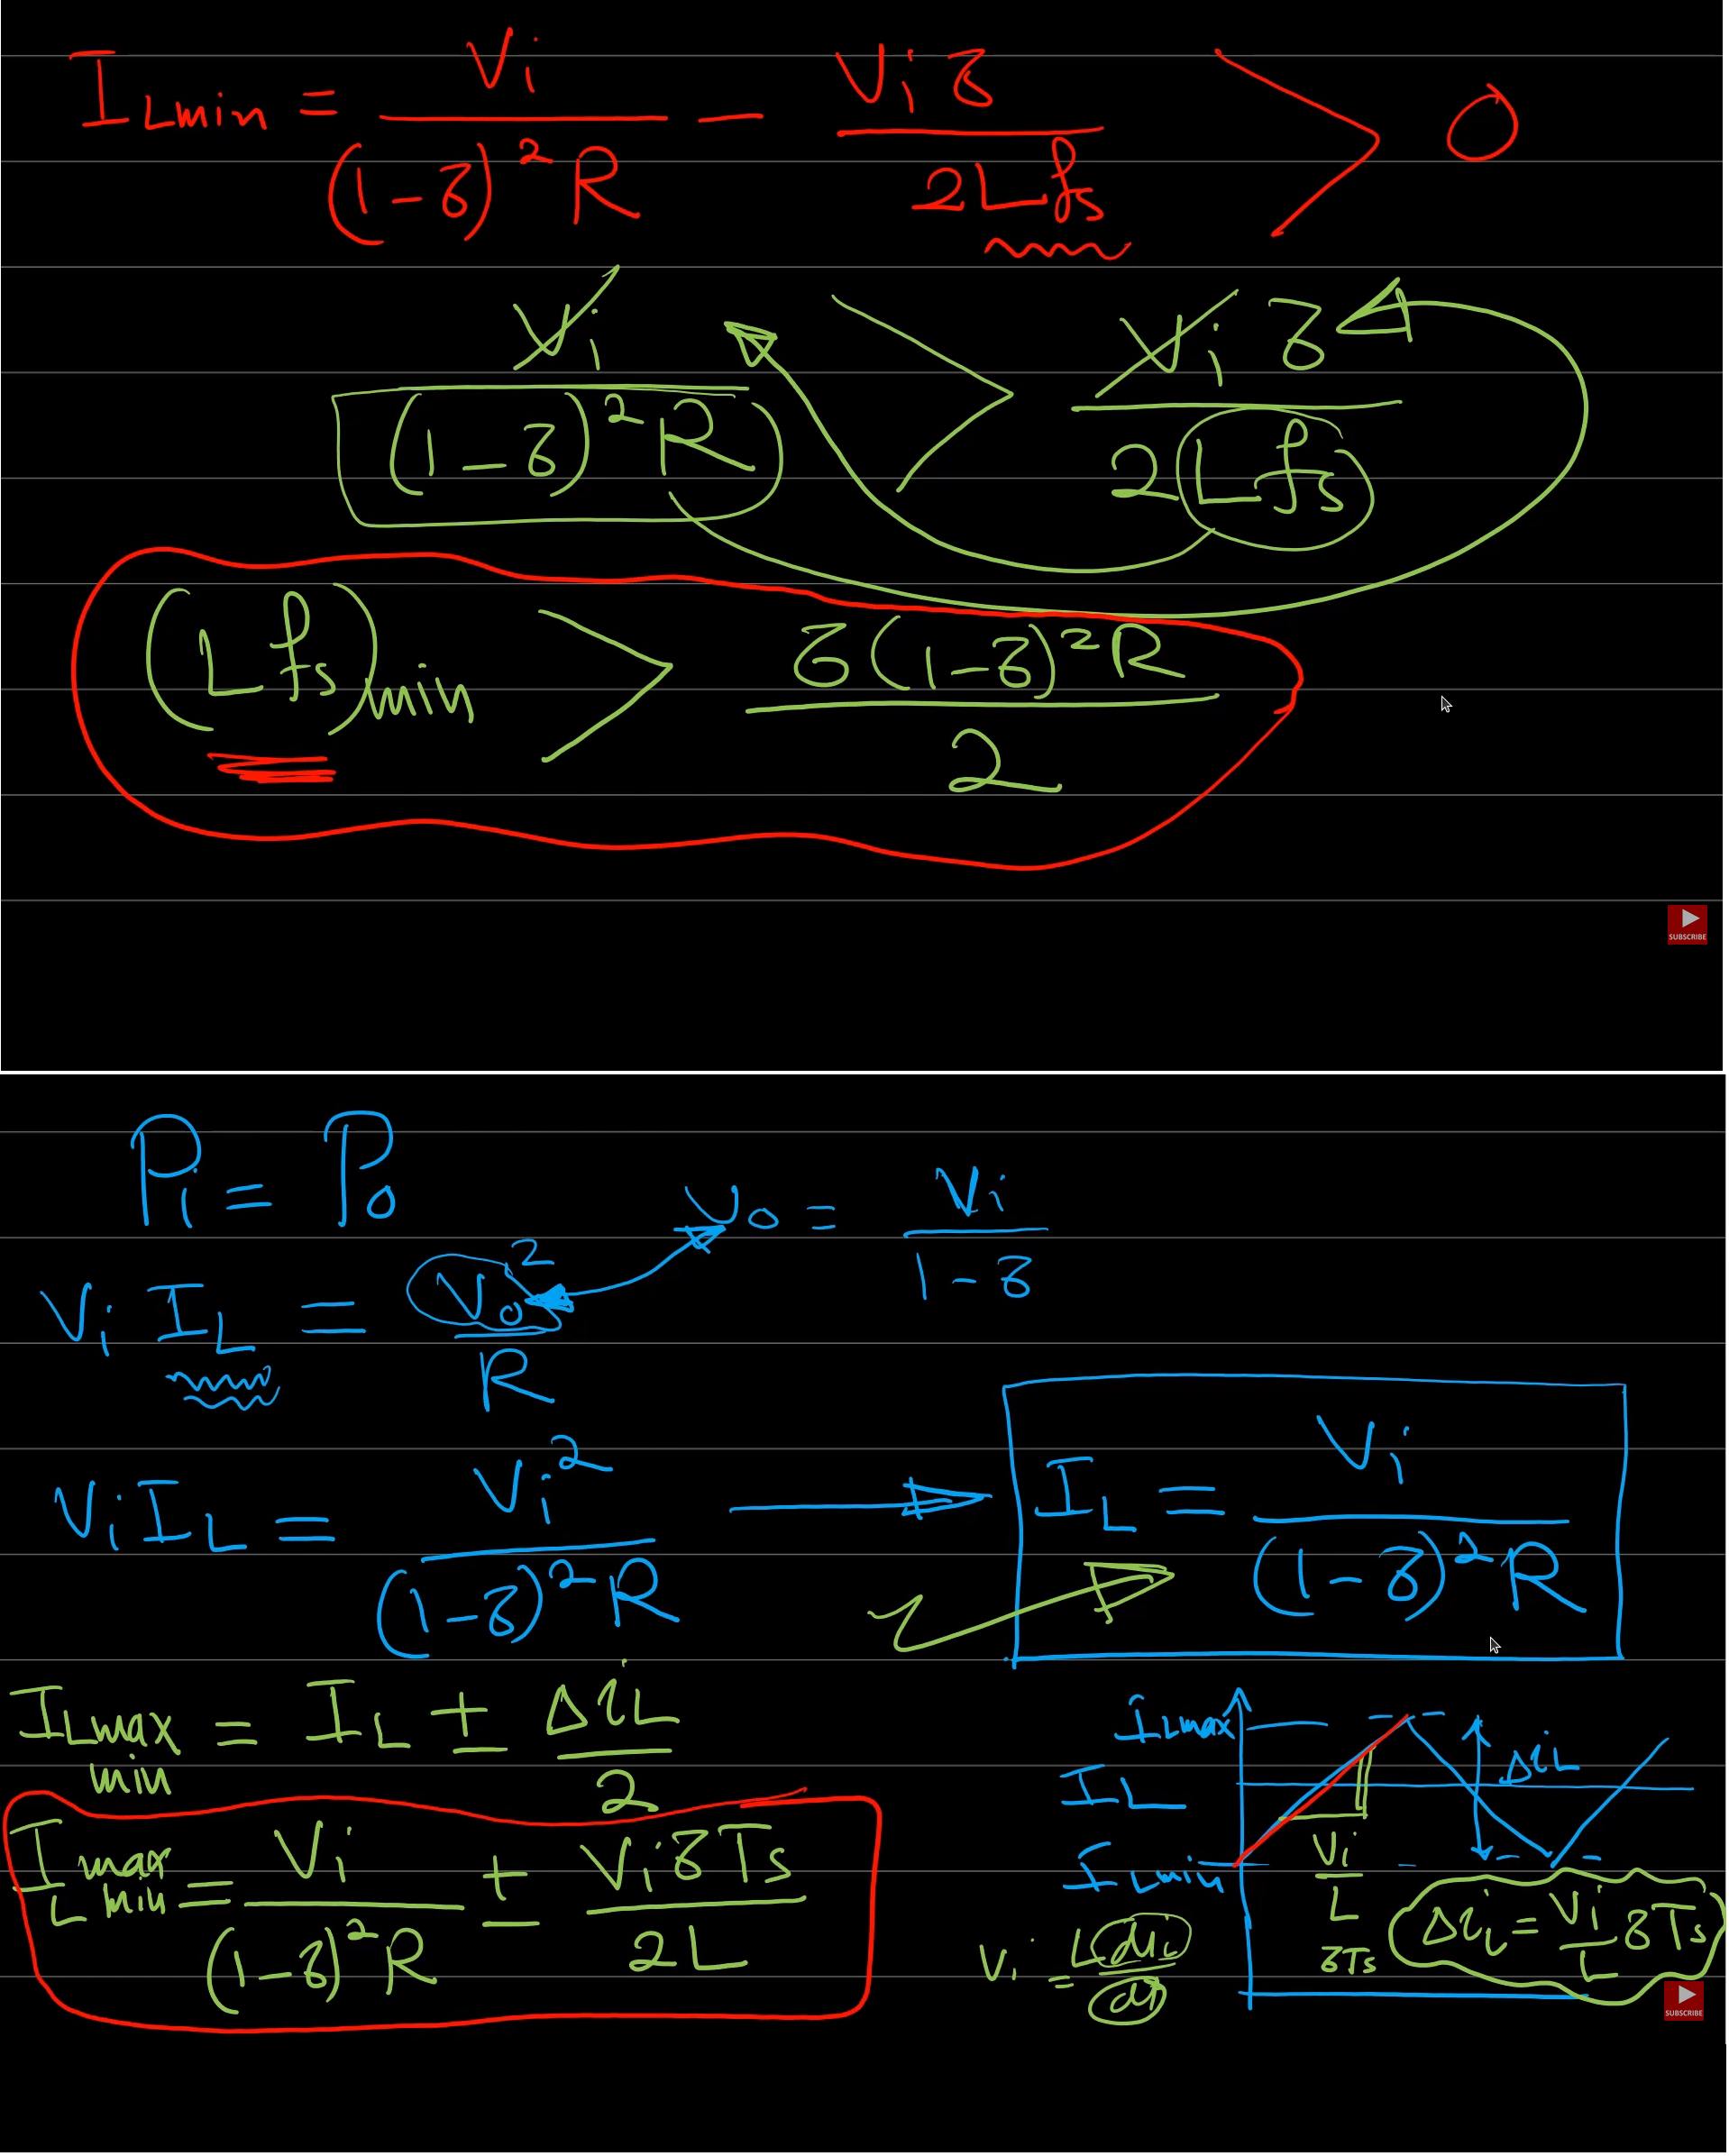 I_Lmin = Vi / (1-δ)²R - Viδ / 2Lfs > 0
Vi / (1-δ)²R > Viδ / 2Lfs
(Lfs)min > δ(1-δ)²R / 2
SUBSCRIBE
Pi = Po
Vo = Vi / 1-δ
Vi I_L = Vo² / R
Vi I_L = Vi² / (1-δ)²R → I_L = Vi / (1-δ)²R
I_L max min = I_L ± Δi_L / 2
I_L max min = Vi / (1-δ)²R ± ViδTs / 2L
i_Lmax
I_L
I_Lmin
Δi_L
Vi / L
δTs
Vi = L di_L / dt
Δi_L = Vi / L δTs
SUBSCRIBE